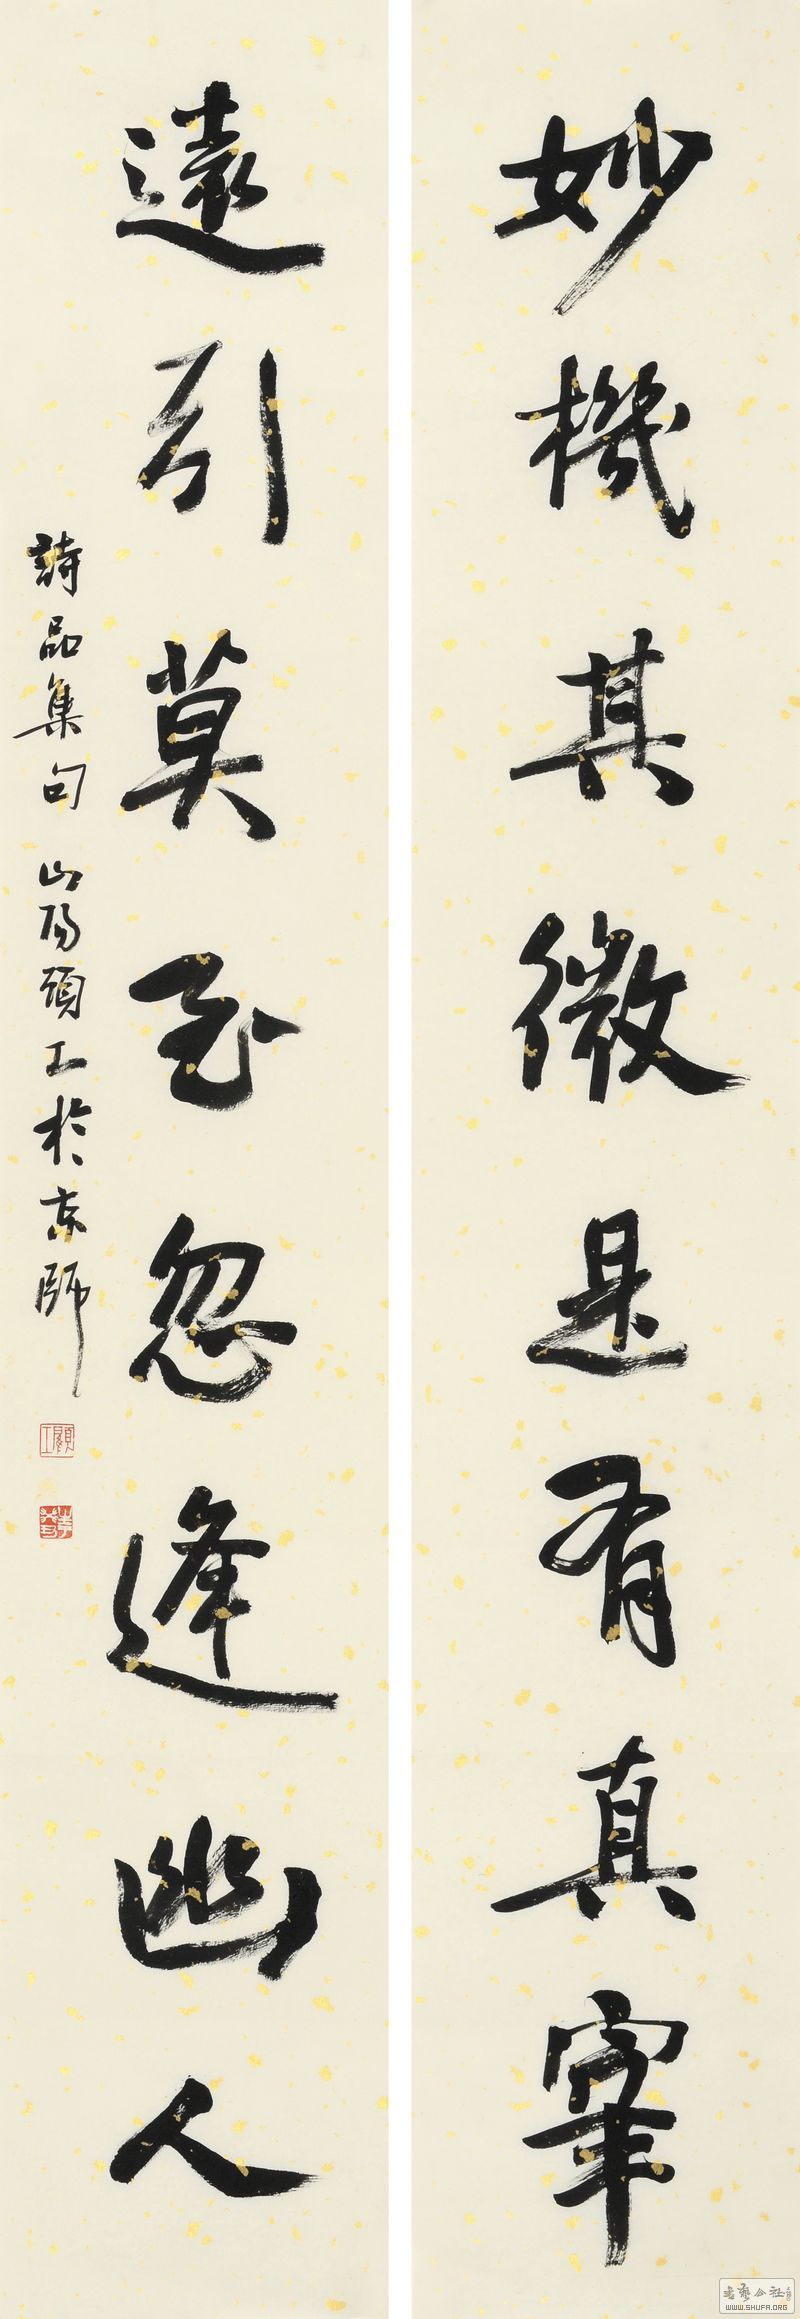 妙機其微是有真宰
遠引莫至忽逢幽人
詩品集句 山陽顧工於京師
顧工
書藝公社
WWW.SHUFA.ORG